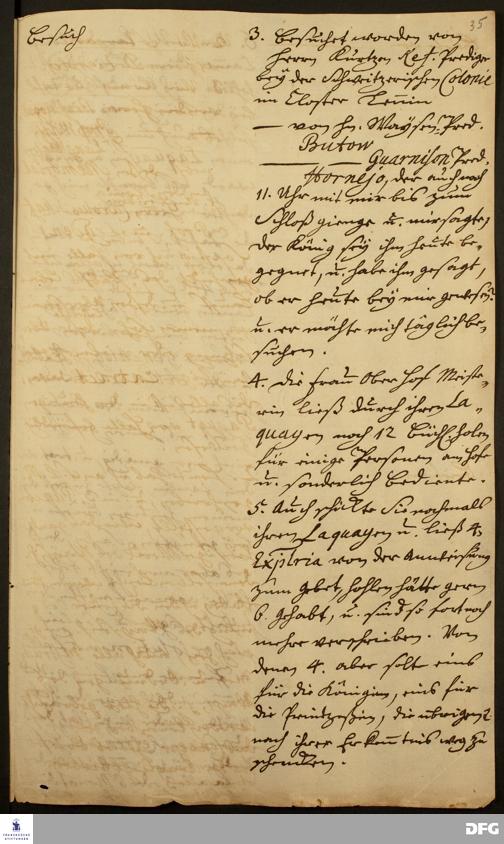 35
Besuch
3. Besuchet worden von
Herrn Kurtzen Ref. Prediger
bey der Schweitzerischen Colonie
im Closter Lennin
— von Hn. Waysen-Pred.
Butow
— Guarnison Pred.
Hornejo, der auch nach
11. Uhr mit mir bis zum
Schloß gienge u. mir sagte,
der König sey ihm heute be-
gegnet, u. habe ihm gesagt,
ob er heute bey mir gewesen?
u. er möchte mich täglich be-
suchen.
4. Die Frau Ober Hof Meiste-
rin ließ durch ihren La-
quayen noch 12 Büchl. holen
für einige Personen am Hofe
u. sonderlich Bediente.
5. Auch schickte Sie nochmals
ihren Laquayen u. ließ 4.
Explria von der Anweisung
zum Gebet, hohlen hätte gern
6. gehabt, u. sind so fort noch
mehre verschrieben. Von
denen 4. aber solt eins
für die Königin, eins für
die Printzeßen, die übrigen 2
nach ihrer Erkenntnis weg zu
schencken.
FRANCKESCHE
STIFTUNGEN
DFG